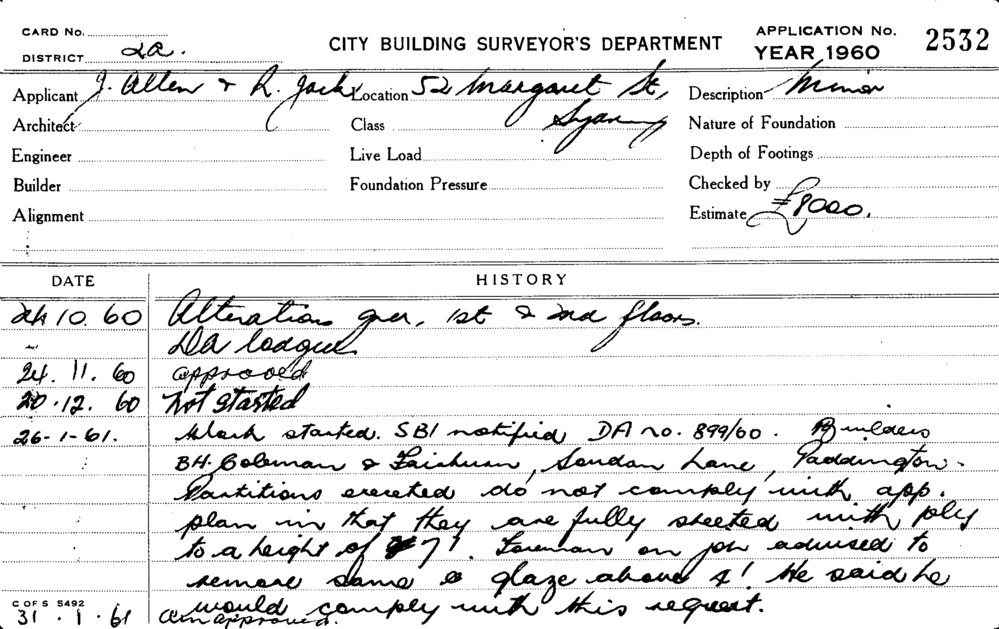 CARD No.
DISTRICT 2A.
CITY BUILDING SURVEYOR'S DEPARTMENT
APPLICATION No.
YEAR 1960
2532
Applicant J. Allen & R. Jack Location 52 Margaret St, Description Minor
Architect Class Sydney Nature of Foundation
Engineer Live Load Depth of Footings
Builder Foundation Pressure Checked by
Alignment Estimate £8000.
DATE HISTORY
24 10. 60 Alterations grd, 1st & 2nd floors.
DA lodged
24. 11. 60 approved
20.12. 60 Not started
26-1-61. Work started. SBI notified DA no. 899/60. Builders
BH. Coleman & , Soudan Lane, Paddington.
Partitions erected do not comply with app.
plan in that they are fully sheeted with ply
to a height of 7'. Foreman on job advised to
remove same & glaze above 4'. He said he
would comply with this request.
C OF S 5492
31. 1. 61 approved.